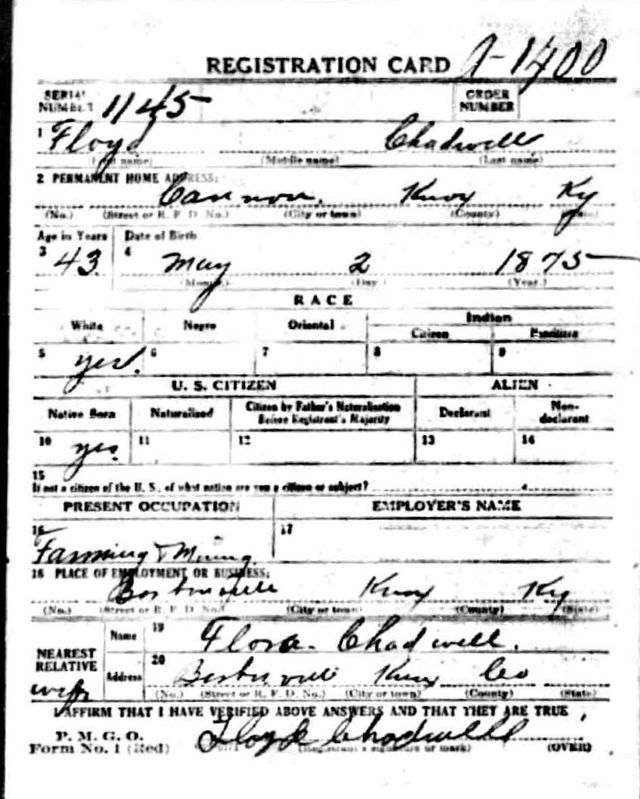 REGISTRATION CARD A-1400
SERIAL NUMBER 1145 ORDER NUMBER
1 Floyd Chadwell
(First name) (Middle name) (Last name)
2 PERMANENT HOME ADDRESS:
Cannon, Knox Ky
(No.) (Street or R. F. D. No.) (City or town) (County) (State)
Age in Years Date of Birth
3 43 4 May 2 1875
(Month.) (Day.) (Year.)
RACE
White Negro Oriental Indian
Citizen
5 yes. 6 7 8 9
U. S. CITIZEN ALIEN
Native Born Naturalized Citizen by Father's Naturalization Before Registrant's Majority Declarant Non-declarant
10 yes. 11 12 13 14
15
If not a citizen of the U. S., of what nation are you a citizen or subject?
PRESENT OCCUPATION EMPLOYER'S NAME
16 17
Farming & Mining
18 PLACE OF EMPLOYMENT OR BUSINESS:
Knox Ky
(No.) (Street or R. F. D. No.) (City or town) (County) (State)
NEAREST RELATIVE Name 19 Flora Chadwell.
Address 20 Knox Co
wife (No.) (Street or R. F. D. No.) (City or town) (County) (State)
I AFFIRM THAT I HAVE VERIFIED ABOVE ANSWERS AND THAT THEY ARE TRUE
P. M. G. O.
Form No. 1 (Red) Floyd Chadwell
(Registrant's signature or mark) (OVER)